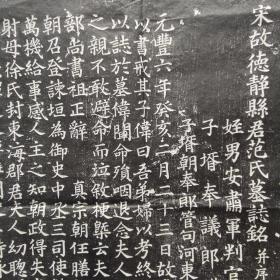 宋故德靜縣君范氏墓誌銘并
姪男安肅軍判官
子壻奉議郎
子壻朝奉郎管司河東
元豐六年癸亥二月二十三日
以書戒其子偉曰吾弟婦以考終
以誌於墓偉聞命殞咽退念夫人
之親不敢避命而泣敘梗槩云夫
部尚書祖正辭 真宗朝任膳
朝召登諫垣為御史中丞三司使
萬機給事感人主之知朝政得失
射母徐氏封東海郡君夫人幼聰